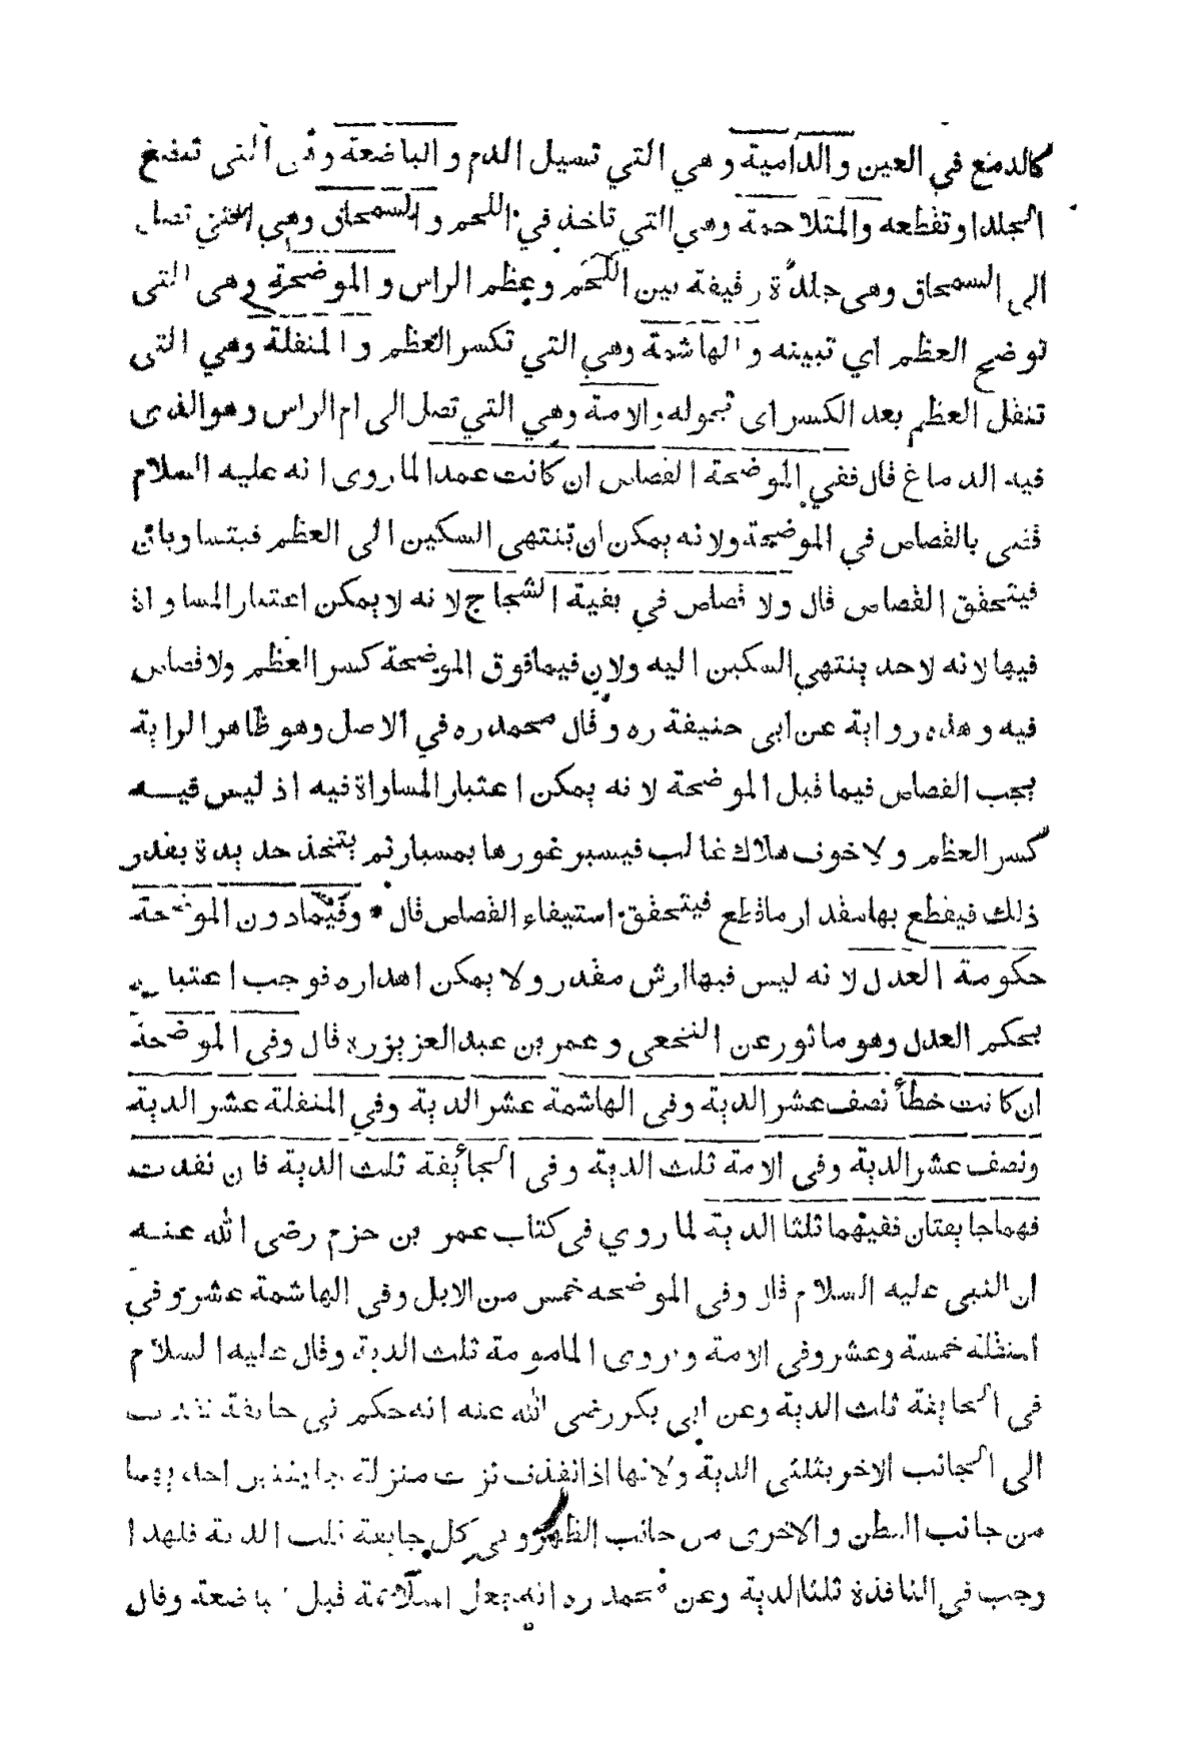 كالدمع في العين والدامية وهي التي تسيل الدم والباضعة وهي التي تبضع
الجلد اوتقطعه والمتلاحمة وهي التي تاخذ في اللحم والسمحاق وهي التي تصل
الى السمحاق وهى جلدة رقيقة بين اللحم وعظم الراس والموضحة وهى التى
توضح العظم اي تبينه والهاشمة وهي التي تكسر العظم والمنقلة وهي التى
تنقل العظم بعد الكسر اى تحوله والامة وهي التي تصل الى ام الراس وهو الذى
فيه الدماغ قال ففي الموضحة القصاص ان كانت عمدا لما روى انه عليه السلام
قضى بالقصاص في الموضحة ولانه يمكن ان تنتهى السكين الى العظم فيتساويان
فيتحقق القصاص قال ولا قصاص في بقية الشجاج لانه لا يمكن اعتبار المساواة
فيها لانه لا حد ينتهي السكين اليه ولان فيما فوق الموضحة كسر العظم ولا قصاص
فيه وهذه رواية عن ابى حنيفة ره وقال محمد ره في الاصل وهو ظاهر الراية
يجب القصاص فيما قبل الموضحة لانه يمكن اعتبار المساواة فيه اذ ليس فيه
كسر العظم ولا خوف هلاك غالب فيسبر غورها بمسبار ثم يتخذ حديدة بقدر
ذلك فيقطع بها مقدار ما قطع فيتحقق استيفاء القصاص قال * وفيما دون الموضحة
حكومة العدل لانه ليس فيها ارش مقدر ولا يمكن اهداره فوجب اعتباره
بحكم العدل وهو ماثور عن النخعى وعمر بن عبد العزيز ره قال وفى الموضحة
ان كانت خطأ نصف عشر الدية وفى الهاشمة عشر الدية وفي المنقلة عشر الدية
ونصف عشر الدية وفى الامة ثلث الدية وفى الجائفة ثلث الدية فان نفذت
فهما جايفتان ففيهما ثلثا الدية لما روي فى كتاب عمر بن حزم رضى الله عنه
ان النبى عليه السلام قال وفى الموضحه خمس من الابل وفى الهاشمة عشر وفي
المنقلة خمسة وعشر وفى الامة ويروى المامومة ثلث الدية وقال عليه السلام
فى الجايفة ثلث الدية وعن ابى بكر رضى الله عنه انه حكم في جايفة نفذت
الى الجانب الاخر بثلثى الدية ولانها اذا نفذت نزلت منزلة جايفتين احديهما
من جانب البطن والاخرى من جانب الظهر وفي كل جايفة ثلث الدية فلهذا
وجب في النافذة ثلثا الدية وعن محمد ره انه يجعل المتلاحمة قبل الباضعة وقال